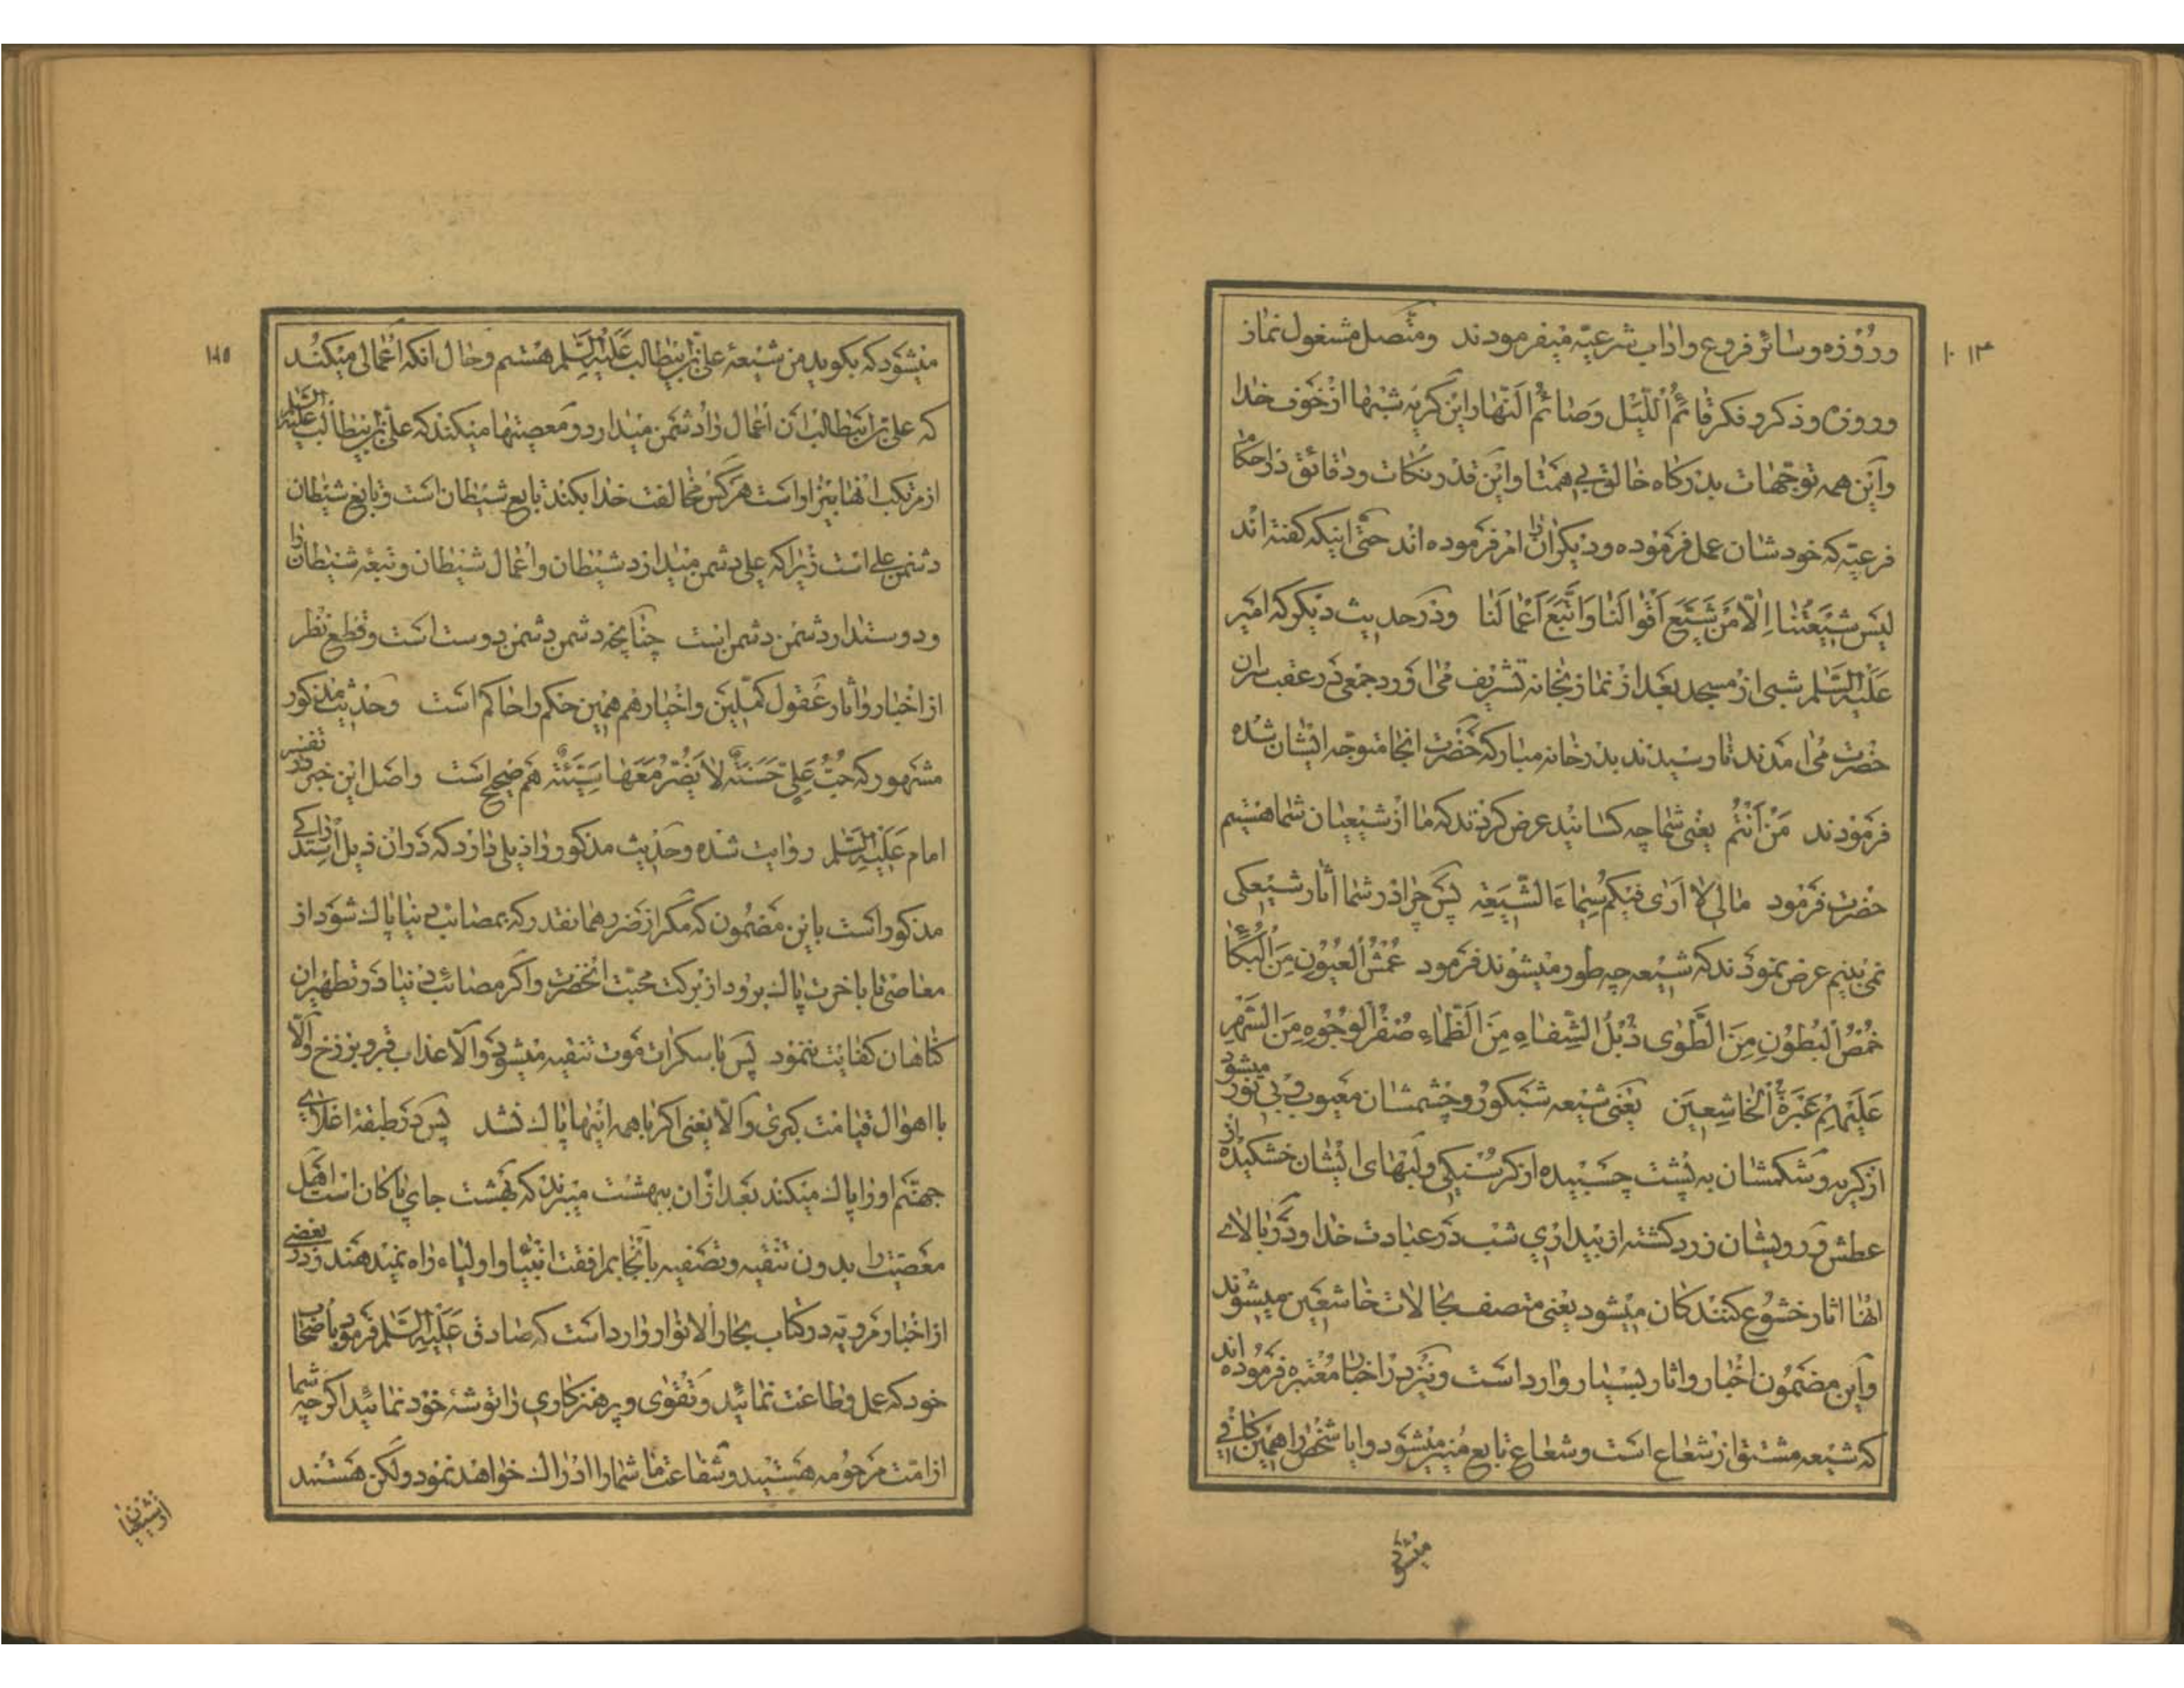 ۱۰۱۳
و روزه و سائر فروع و اداب شرعیّه میفرمودند و متّصل مشغول نماز
و روزه و ذکر و فکر قائمُ اللّیل و صائمُ النّهار این گریه شبها از خوف خدا
و این همه توجّهات بدرکاه خالق بی همتا و این قدر نکات و دقائق در احکام
فرعیّه که خودشان عمل فرموده و دیکران را امر فرموده اند حتّی اینکه کفته اند
لیس شیعتنا اِلّا مَن شَیَّعَ اَقوالَنا وَ اتَّبَعَ اَعمالَنا و در حدیث دیکر که امیر
علیه السّلام شبی از مسجد بعد از نماز بخانه تشریف می آورد جمعی در عقب سر آن
حضرت می آمدند تا رسیدند بدر خانه مبارکه حضرت انجا متوجّه ایشان شده
فرمودند مَن اَنتُم یعنی شما چه کسانید عرض کردند که ما از شیعیان شما هستیم
حضرت فرمود مالی لا اَری فیکم سیماءَ الشّیعَةِ پس چرا در شما آثار شیعکی
نمی بینم عرض نمودند که شیعه چه طور میشوند فرمود عُمشُ العُیُونِ مِنَ البُکاءِ
خُمصُ البُطُونِ مِنَ الطَّوی ذُبُلُ الشِّفاهِ مِنَ الظَّماءِ صُفرُ الوُجُوهِ مِنَ السَّهَرِ
عَلَیهِم غَبَرَةُ الخاشِعینَ یعنی شیعه شبکور و چشمشان معیوب و بی نور میشود
از کریه و شکمشان به پشت چسبیده از کرسنکی و لبهای ایشان خشکیده از
عطش و رویشان زرد کشته از بیداری شب در عبادت خدا و در بالای
انها اثار خشوع کنندکان میشود یعنی متصف بحالات خاشعین میشوند
و این مضمون اخبار و اثار بسیار وارد است و نیز در اخبار معتبره فرموده اند
که شیعه مشتق از شعاع است و شعاع تابع منیر میشود و ایا شخص را همین کافی
میشود
۱۸۵
میشود که بکوید من شیعهٔ علی بن ابیطالب علیه السّلم هستم و حال انکه اعمالی میکند
که علی بن ابیطالب ان اعمال را دشمن میدارد و معصیتها میکند که علی بن ابیطالب علیه السّلم
از مرتکب انها بیزار است هر کس مخالفت خدا بکند تابع شیطان است و تابع شیطان
دشمن علی است زیرا که علی دشمن میدارد شیطان و اعمال شیطان و تبعه شیطان را
و دوستدار دشمن دشمن است چنانچه دشمن دشمن دوست است و قطع نظر
از اخبار و آثار عقول کمّلین و اخیار هم همین حکم را حاکم است و حدیث مذکور
مشهور که حُبُّ عَلِیٍّ حَسَنَةٌ لا یَضُرُّ مَعَها سَیِّئَةٌ هم صحیح است و اصل این خبر در تفسیر
امام علیه السّلم روایت شده و حدیث مذکور را ذیلی دارد که در ان ذیل
مذکور است باین مضمون که مگر از ضرر همانقدر که بمصائب دنیا پاک شود از
معاصی تا باخرت پاک برود از برکت محبّت انحضرت و اگر مصائب دنیا در تطهیر ان
کناهان کفایت ننمود پس با سکرات موت تنقیه میشود و الّا عذاب قبر و برزخ والّا
با اهوال قیامت کبری و الّا یعنی اکر با همه اینها پاک نشد پس در طبقه اعلای
جهنّم او را پاک میکند بعد از ان ببهشت میبرند که بهشت جای پاکان است اهل
معصیت را بدون تنقیه و تصفیه بانجا بمرافقت انبیا و اولیاء راه نمیدهند و در بعضی
از اخبار مرویه در کتاب بحار الانوار وارد است که صادق علیه السّلم فرمود باصحاب
خود که عمل و طاعت نمائید و تقوی و پرهیزکاری را توشهٔ خود نمائید اکر چه شما
از امّت مرحومه هستید و شفاعت ما شما را ادراک خواهد نمود ولکن هستند
از شیعیان